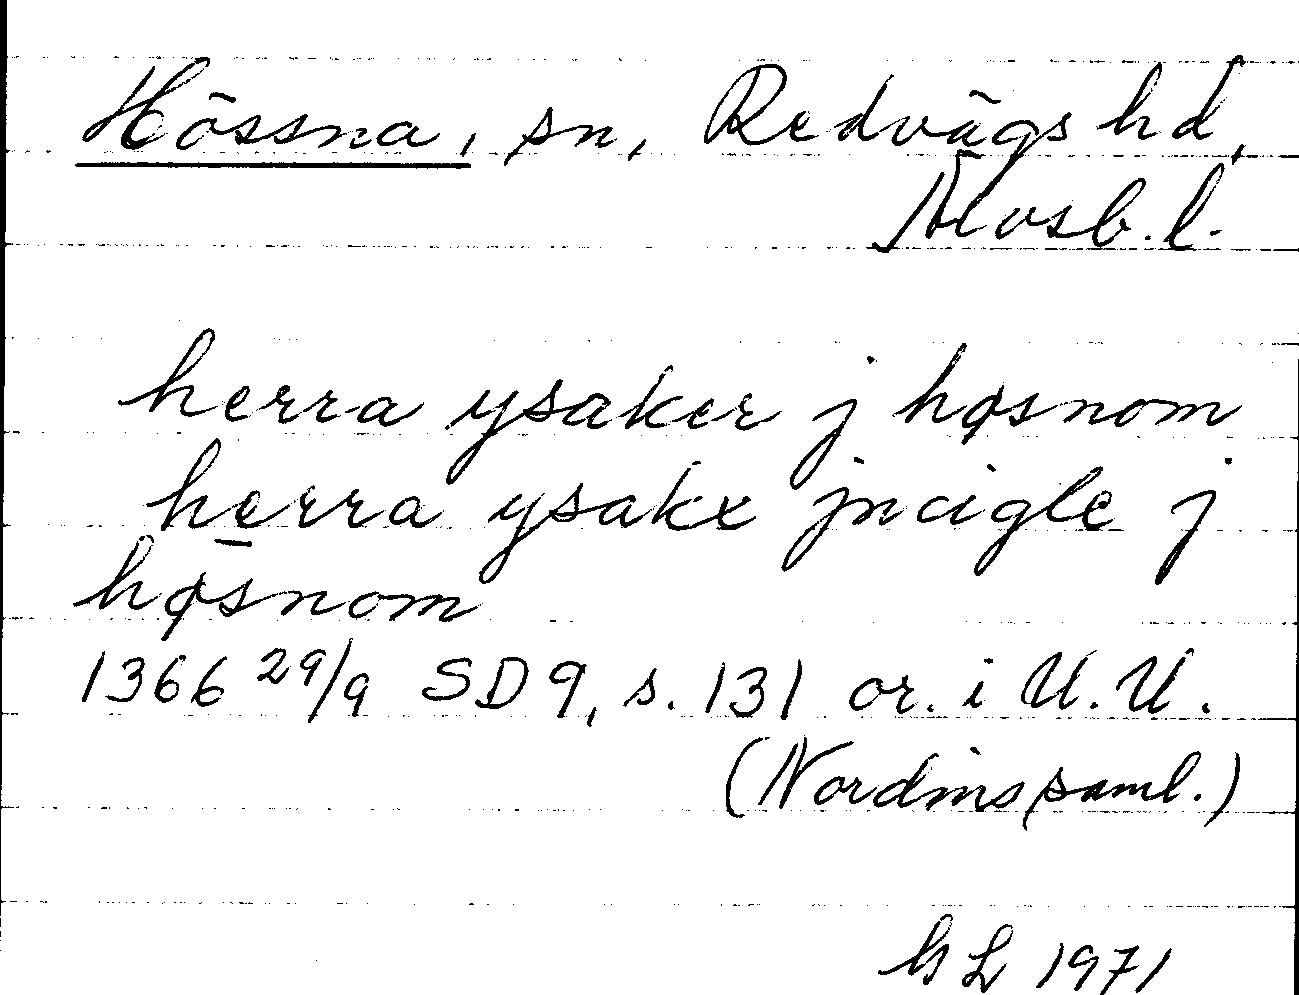 Hössna, sn, Redvägs hd,
Älvsb. l.
herra ysaker j høsnom
herra ysakx jncigle j
høsnom
1366 29/9 SD 9, s. 131 or. i U.U.
(Nordins saml.)
GL 1971